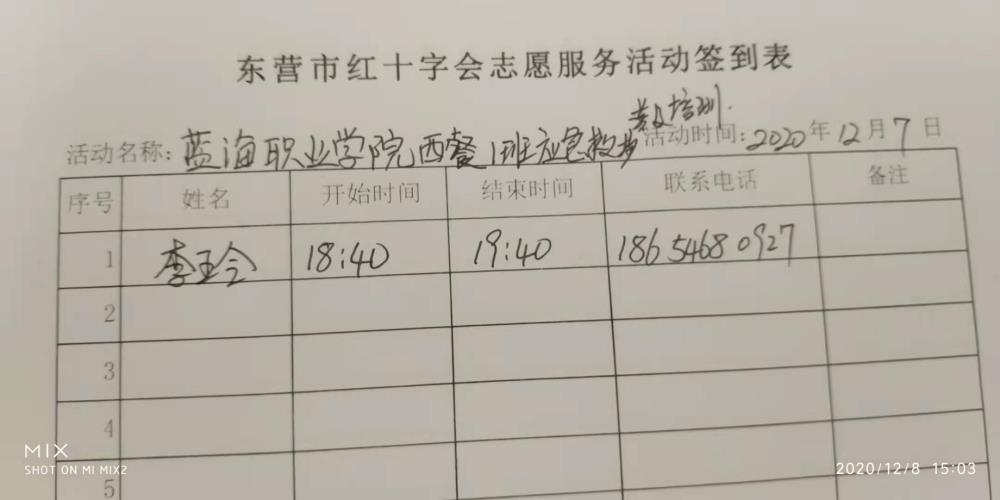 东营市红十字会志愿服务活动签到表
普及培训.
活动名称:蓝海职业学院西餐1班应急救护 活动时间:2020年12月7日
序号 姓名 开始时间 结束时间 联系电话 备注
1 李玉令 18:40 19:40 186 5468 0927
2
3
4
5
MIX
SHOT ON MI MIX2
2020/12/8 15:03